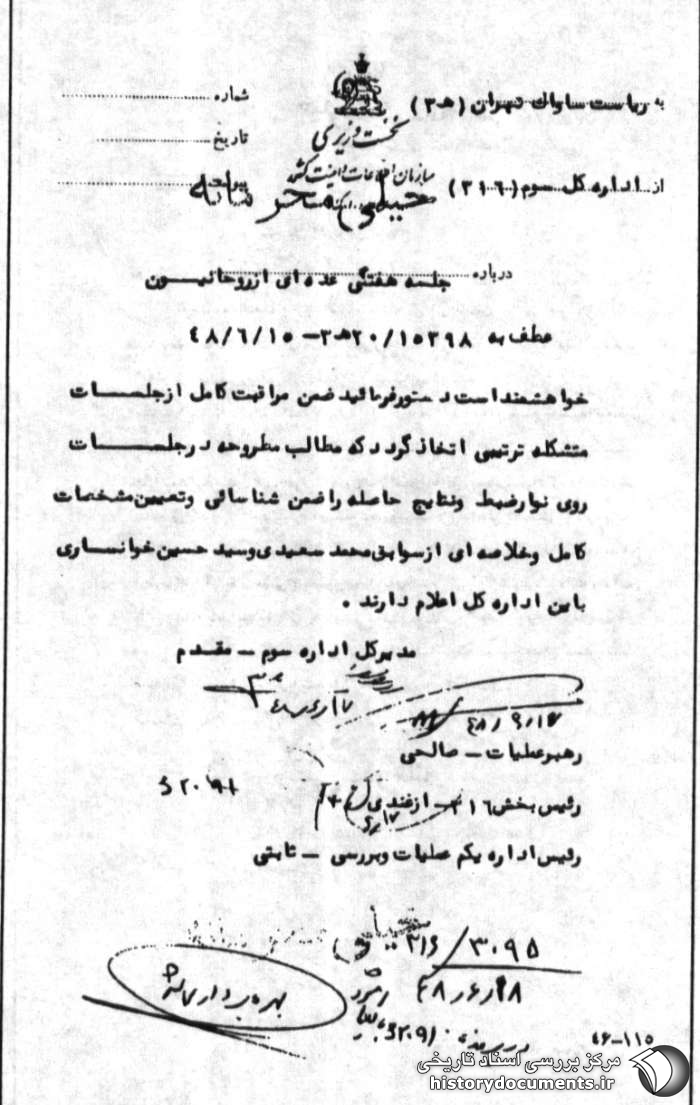 به ریاست ساواک تهران (ه‍ـ ۳)
شماره
نخست وزیری
تاریخ
سازمان اطلاعات و امنیت کشور
از اداره کل سوم (۳۱۶)
خیلی محرمانه
درباره جلسه هفتگی عده‌ای از روحانیون
عطف به ۲۰/۱۵۳۹۸ه‍۳ – ۴۸/۶/۱۵
خواهشمند است دستور فرمائید ضمن مراقبت کامل از جلسات
متشکله ترتیبی اتخاذ گردد که مطالب مطروحه در جلسات
روی نوار ضبط و نتایج حاصله را ضمن شناسائی و تعیین مشخصات
کامل و خلاصه ای از سوابق محمد سعیدی و سید حسین خوانساری
باین اداره کل اعلام دارند .
مدیر کل اداره سوم – مقدم
رهبر عملیات – صالحی
رئیس بخش ۳۱۶ – ازغندی
رئیس اداره یکم عملیات و بررسی – ثابتی
۳۱۶/۳۰۹۵
۴۸/۶/۱۸
بهره‌برداری
۴۶-۱۱۵
مرکز بررسی اسناد تاریخی
historydocuments.ir